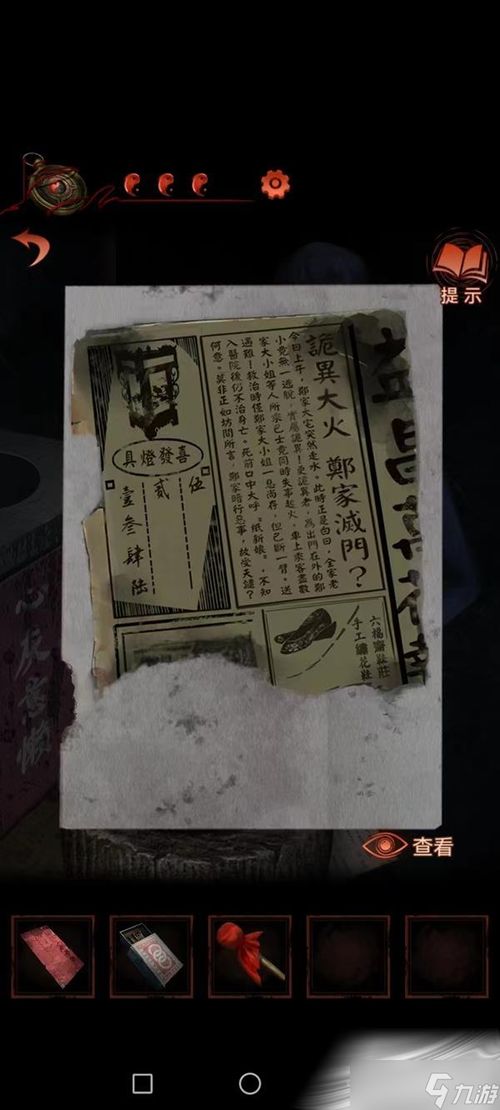 提示
益昌
詭異大火 鄭家滅門？
今日上午，鄭家大宅突然走水。此時正是白日，全家老
小竟無一逃脫，實屬詭異！更詭異者，為出門在外的鄭
家大小姐等人所乘巴士竟同時失事起火，車上乘客盡數
遇難！救治時僅鄭家大小姐一息尚存，但已斷一臂。送
入醫院後仍不治身亡。死前口中大呼「紙新娘」，不知
何意。莫非正如坊間所言，鄭家暗行惡事，故受天譴？
喜發燈具
伍
貳
壹叁肆陸
六福齋鞋莊
手工繡花鞋
查看
九游